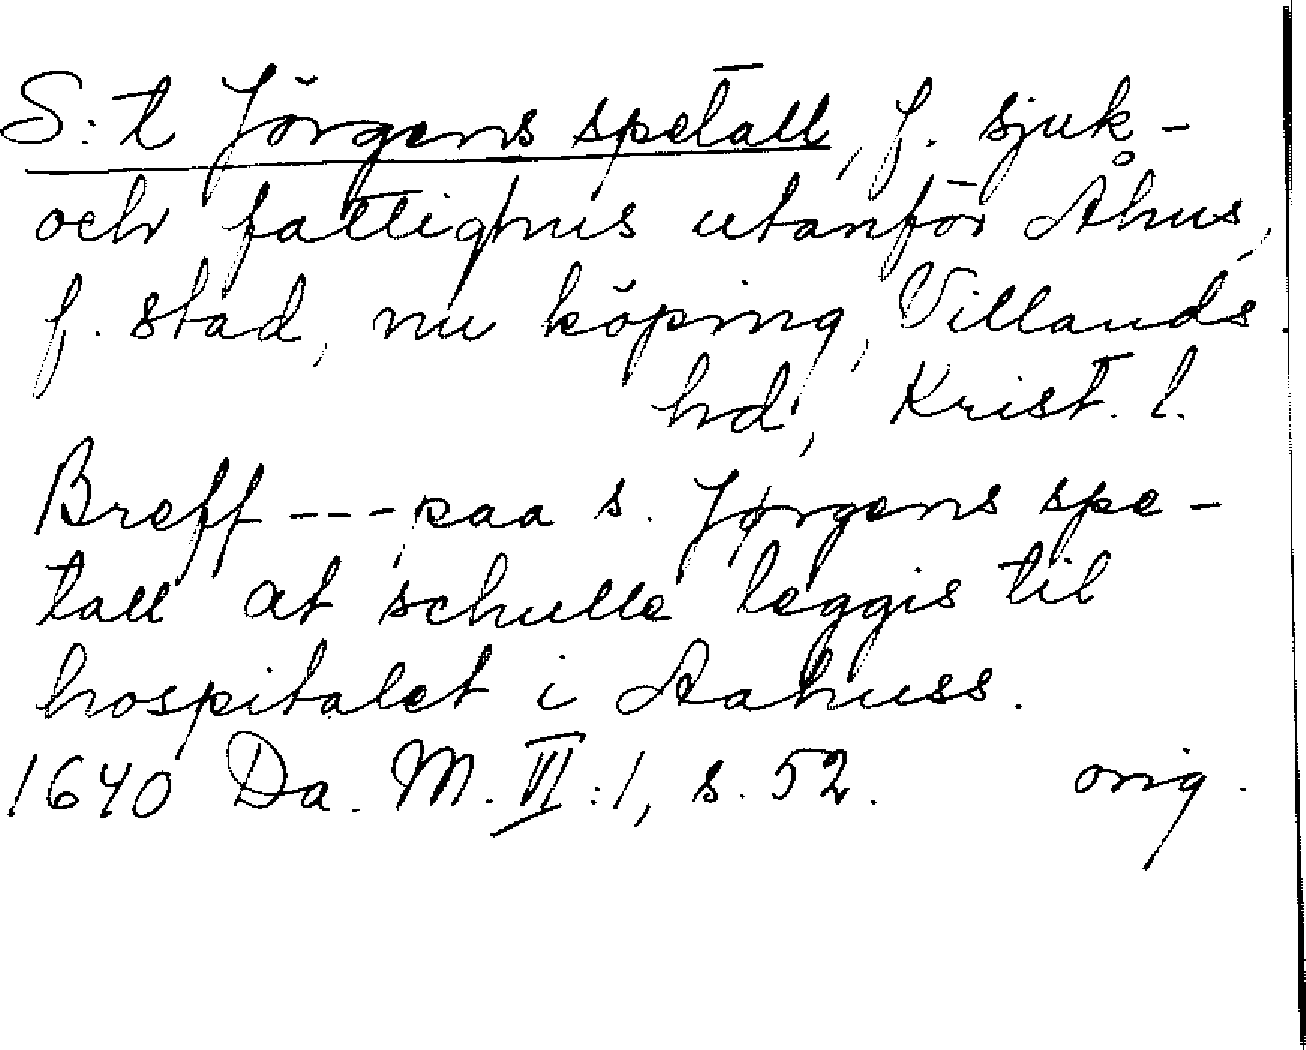 S:t Jörgens spetall, f. sjuk-
och fattighus utanför Åhus,
f. stad, nu köping, Villands
hd, Krist. l.
Breff --- paa s. Jørgens spe-
tall at schulle leggis til
hospitalet i Aahuss.
1640 Da. M. VI:1, s. 52. orig.